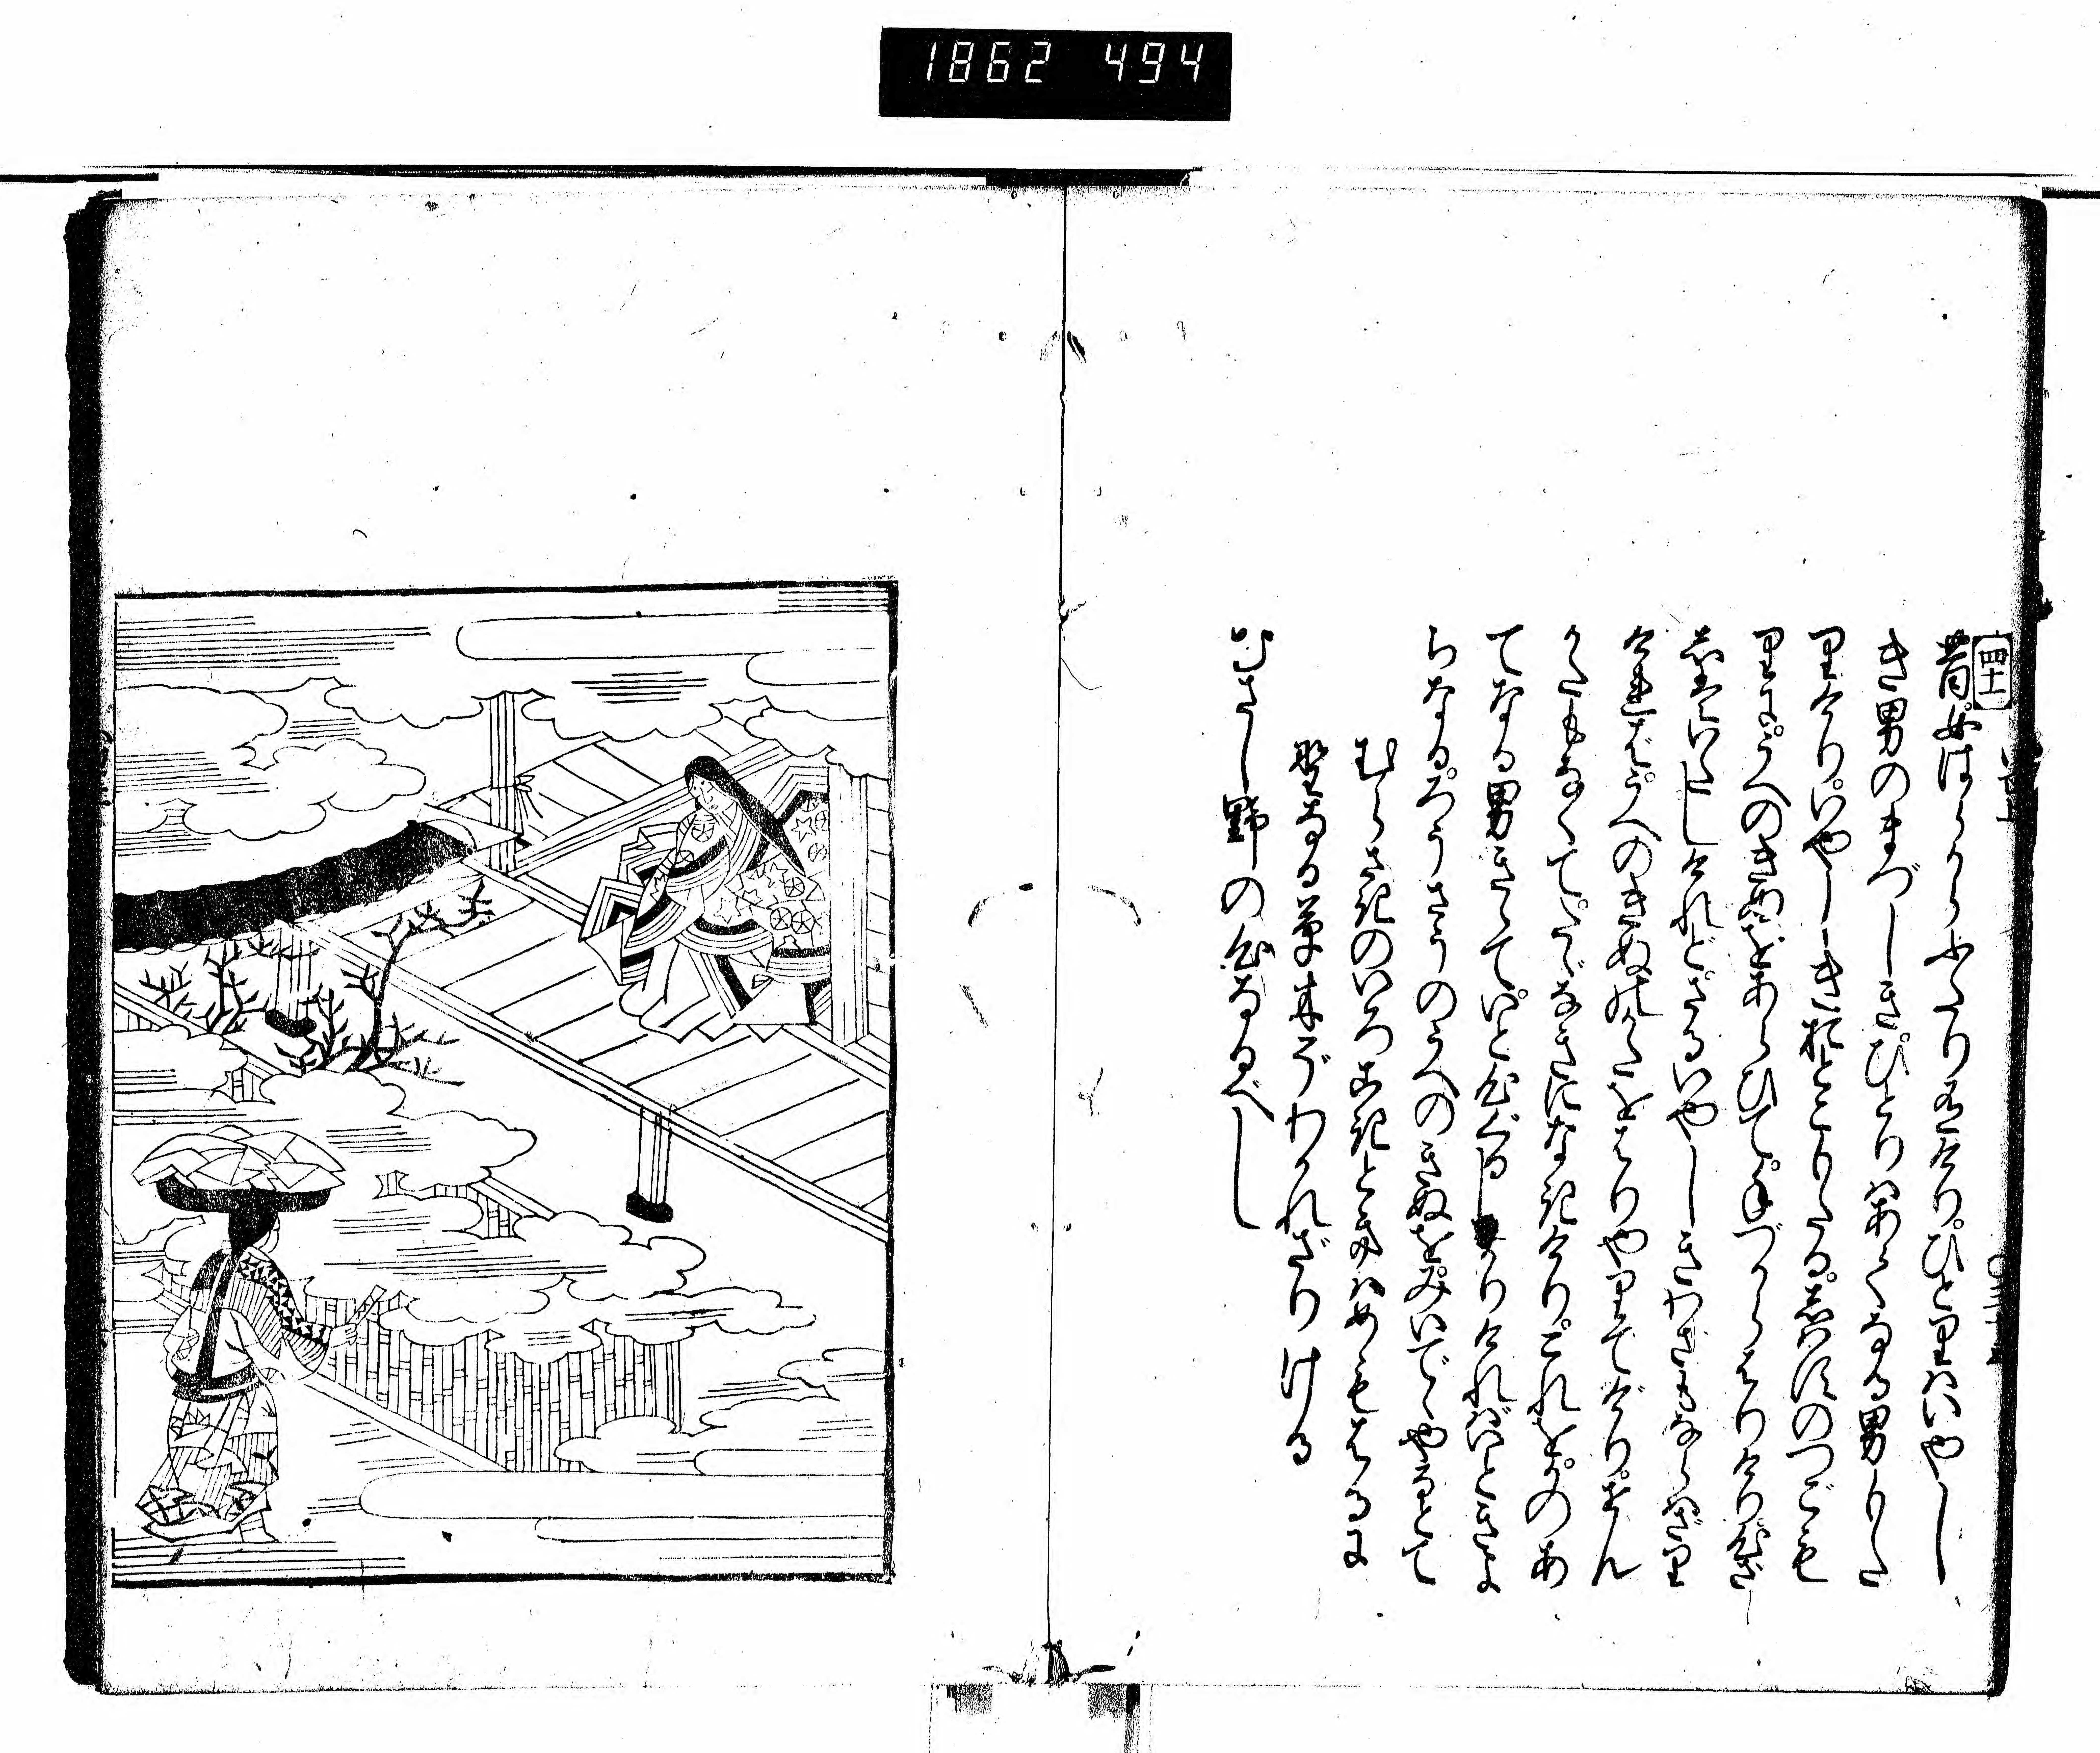 1862 494
四十一
昔女はらからふたり有けりひとりはいやし
き男のまづしきひとりはあてなる男もた
りけりいやしき男もたるしはすのつごも
りにうへのきぬをあらひててづからはりけり心ざ
しはいたしけれどさるいやしきわざもならはざり
ければうへのきぬのかたをはりやりてけりせん
かたもなくてたゞなきになきけりこれをかのあ
てなる男きゝていと心ぐるしかりければいときよ
らなるろうさうのうへのきぬをみいでゝやるとて
むらさきのいろこきときはめもはるに
野なる草木ぞわかれざりける
むさし野の心なるべし